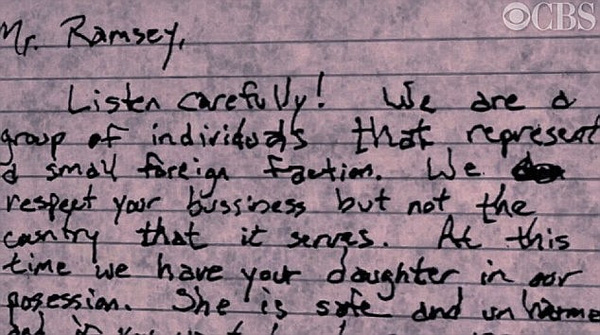 CBS
Mr. Ramsey,
Listen carefully! We are a
group of individuals that represent
a small foreign faction. We
respect your bussiness but not the
country that it serves. At this
time we have your daughter in our
posession. She is safe and unharme